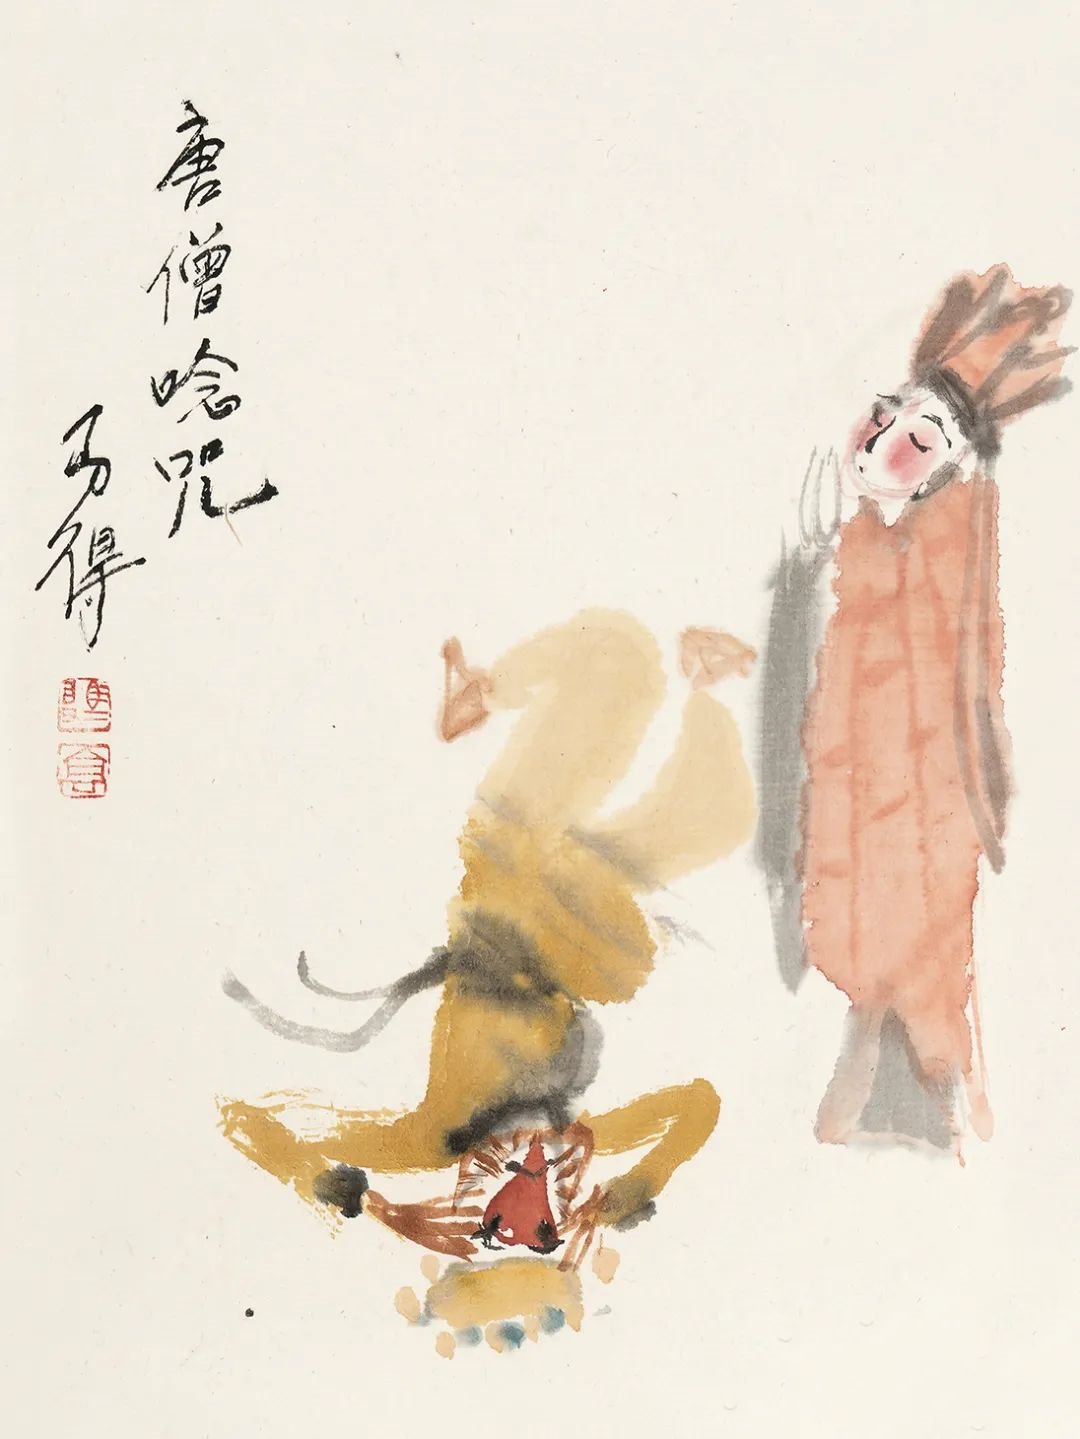 唐僧唸咒
马得